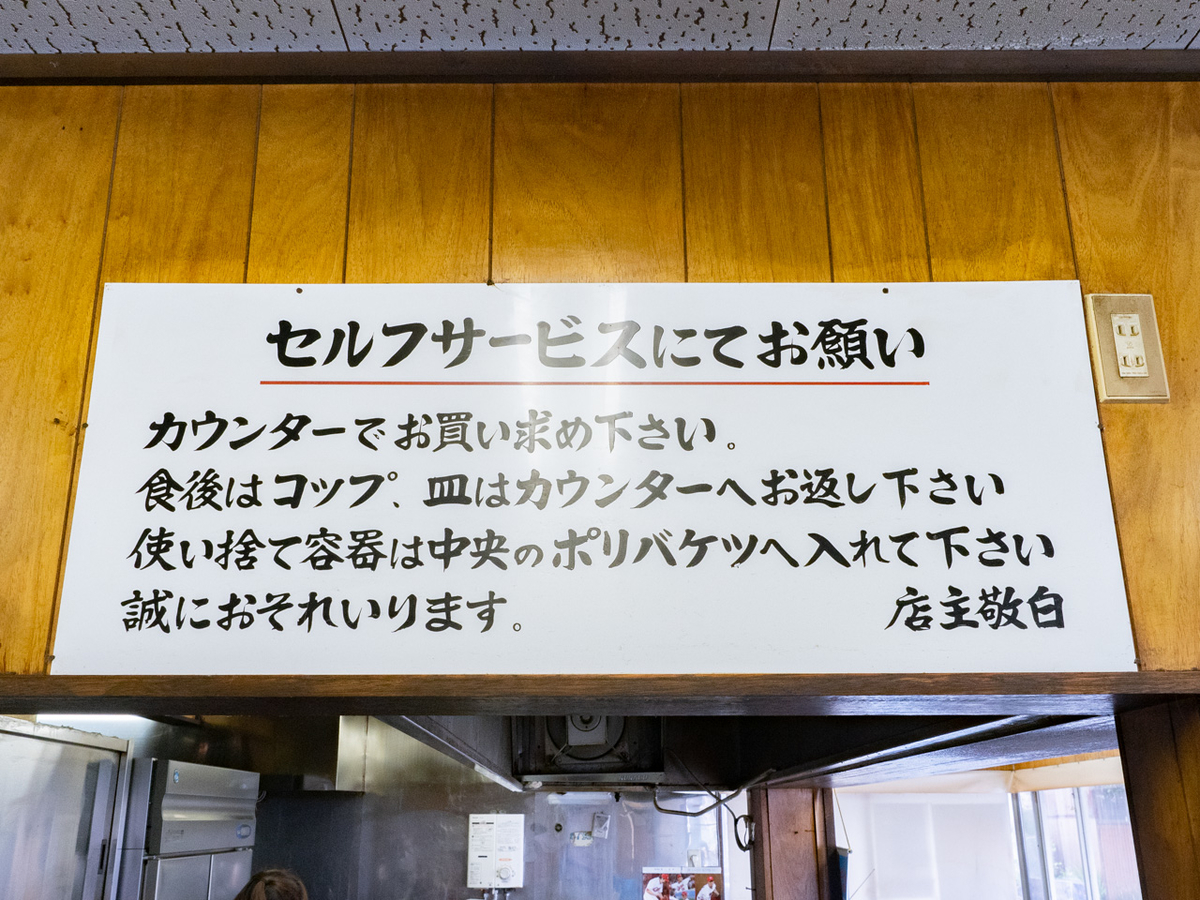 セルフサービスにてお願い
カウンターでお買い求め下さい。
食後はコップ、皿はカウンターへお返し下さい
使い捨て容器は中央のポリバケツへ入れて下さい
誠におそれいります。 店主敬白